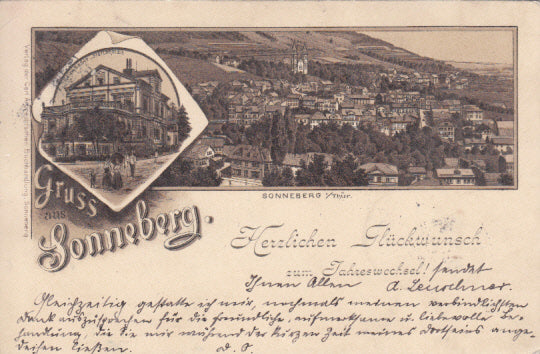 SONNEBERG i/Thür.
Gruss
aus
Sonneberg.
Herzlichen Glückwunsch
zum Jahreswechsel! sendet
Ihnen Allen
Gleichzeitig gestatte ich mir, nochmals meinen verbindlichsten
Dank auszusprechen für die freundliche, aufmerksame u. liebevolle Be-
handlung, die Sie mir während der kurzen Zeit meines Dortseins ange-
deihen ließen. d. O.